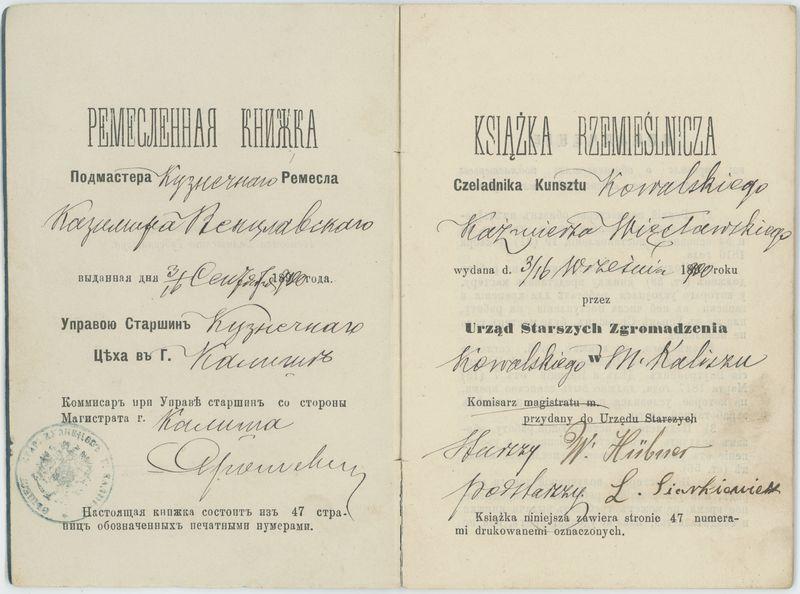 РЕМЕСЛЕННАЯ КНИЖКА
Подмастера Кузнечнаго Ремесла
Казимира Венцлавскаго
выданная дня 3/16 Сентября 1900 года.
Управою Старшинъ Кузнечнаго
Цѣха въ Г. Калишѣ
Коммисаръ при Управѣ старшинъ со стороны
Магистрата г. Калиша
Настоящая книжка состоитъ изъ 47 стра-
ницъ обозначенныхъ печатными нумерами.
KSIĄŻKA RZEMIEŚLNICZA
Czeladnika Kunsztu Kowalskiego
Kaźmierza Więcławskiego
wydana d. 3/16 Wrześnie 1900 roku
przez
Urząd Starszych Zgromadzenia
Kowalskiego w M. Kaliszu
Komisarz magistratu m.
przydany do Urzędu Starszych
Starszy W. Hübner
podstarszy L. Siewkiewicz
Książka niniejsza zawiera stronic 47 numera-
mi drukowanemi oznaczonych.